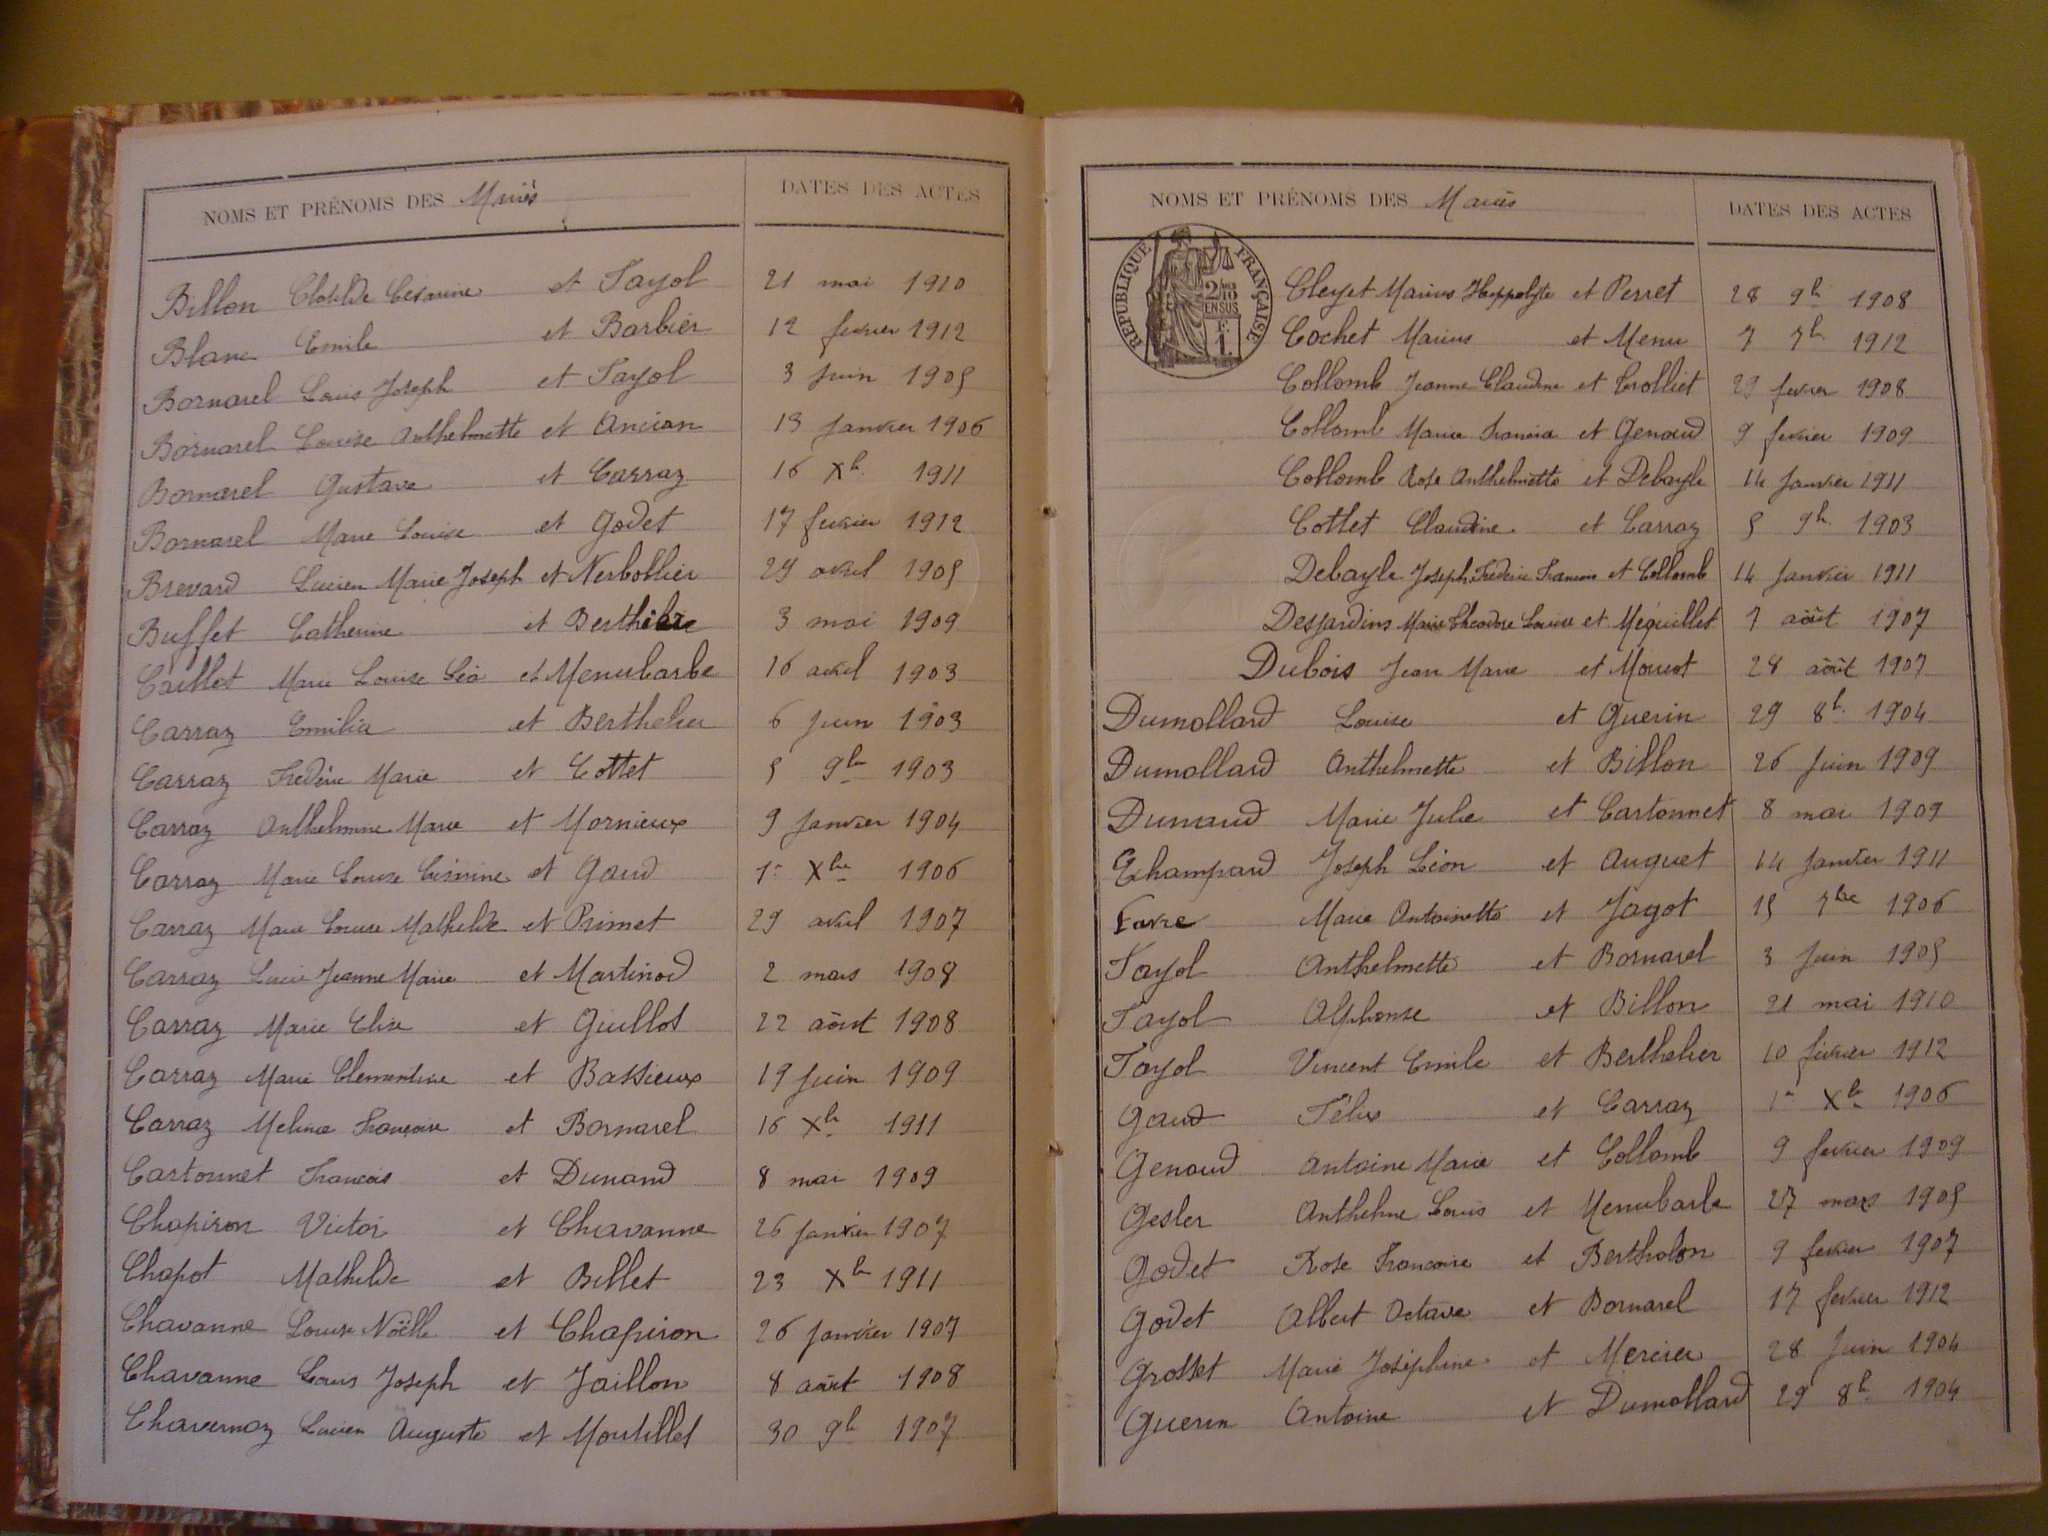 NOMS ET PRÉNOMS DES Mariés DATES DES ACTES
Billon Clotilde Césarine et Fayol 21 mai 1910
Blanc Emile et Barbier 12 fevrier 1912
Bornarel Louis Joseph et Fayol 3 juin 1905
Bornarel Louise Anthelmette et Ancian 13 janvier 1906
Bornarel Gustave et Carraz 16 Xb 1911
Bornarel Marie Louise et Godet 17 fevrier 1912
Brevard Lucien Marie Joseph et Nerbollier 29 avril 1905
Buffet Catherine et 3 mai 1909
Caillet Marie Louise Léa et Menubarbe 16 avril 1903
Carraz Emilia et Berthelier 6 juin 1903
Carraz Frédéric Marie et Cottet 5 9b 1903
Carraz Anthelmine Marie et Mornieux 9 janvier 1904
Carraz Marie Louise Césarine et Gaud 1r Xbre 1906
Carraz Marie Louise Mathilde et Primet 29 avril 1907
Carraz Lucie Jeanne Marie et Martinod 2 mars 1908
Carraz Marie Elise et Guillot 22 août 1908
Carraz Marie Clementine et Bassieux 19 juin 1909
Carraz Melina Françoise et Bornarel 16 Xb 1911
Cartonnet Francois et Dunand 8 mai 1909
Chapiron Victor et Chavanne 26 janvier 1907
Chapot Mathilde et Billet 23 Xb 1911
Chavanne Louise Noëlle et Chapiron 26 janvier 1907
Chavanne Louis Joseph et Jaillon 8 août 1908
Charvernoz Lucien Auguste et Moutillet 30 9b 1907
NOMS ET PRÉNOMS DES Mariés DATES DES ACTES
RÉPUBLIQUE FRANÇAISE
2/10 EN SUS
1 F.
Cleyet Marius Hyppolyte et Perret 28 9b 1908
Cochet Marius et Menu 7 7b 1912
Collomb Jeanne Claudine et Crolliet 29 fevrier 1908
Collomb Marie Francia et Genoud 9 fevrier 1909
Collomb Rose Anthelmette et Debayle 14 janvier 1911
Cottet Claudine et Carraz 5 9b 1903
Debayle Joseph Frederic Francois et Collomb 14 janvier 1911
Desjardins Marie Theodore Louise et Meguillet 7 août 1907
Dubois Jean Marie et Mouret 28 août 1907
Dumollard Louise et Guerin 29 8b 1904
Dumollard Anthelmette et Billon 26 juin 1909
Dunand Marie Julie et Cartonnet 8 mai 1909
Echampard Joseph Léon et Auguet 14 janvier 1911
Favre Marie Antoinette et Jagot 15 7bre 1906
Fayol Anthelmette et Bornarel 3 juin 1905
Fayol Alphonse et Billon 21 mai 1910
Fayol Vincent Emile et Berthelier 10 février 1912
Gaud Félix et Carraz 1r Xb 1906
Genoud Antoine Marie et Collomb 9 fevrier 1909
Gesler Anthelme Louis et Menubarbe 27 mars 1905
Godet Rose Francoise et Bertholon 9 fevrier 1907
Godet Albert Octave et Bornarel 17 fevrier 1912
Grosset Marie Joséphine et Mercier 28 juin 1904
Guerin Antoine et Dumollard 29 8b 1904